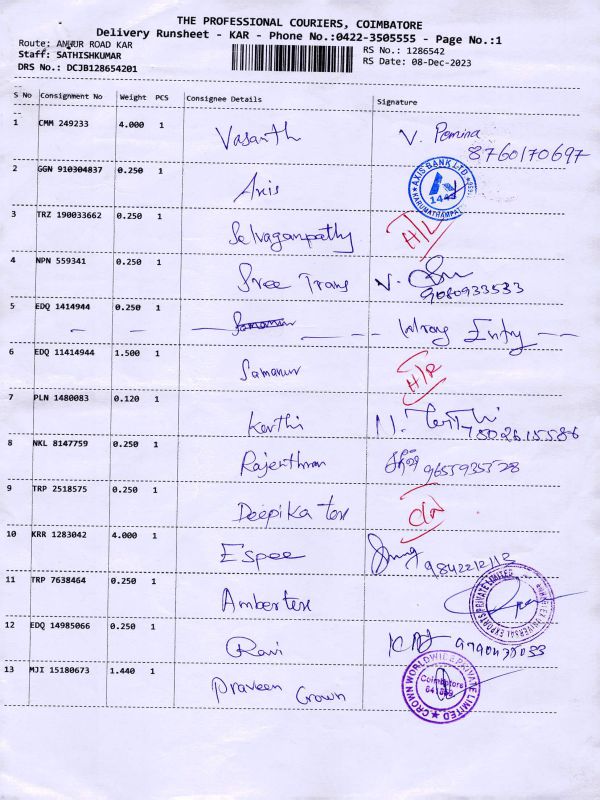 THE PROFESSIONAL COURIERS, COIMBATORE
Delivery Runsheet - KAR - Phone No.:0422-3505555 - Page No.:1
Route: ANNUR ROAD KAR
Staff: SATHISHKUMAR
DRS No.: DCJB128654201
RS No.: 1286542
RS Date: 08-Dec-2023
S No Consignment No Weight PCS Consignee Details Signature
1 CMM 249233 4.000 1 Vasanth V. Pemina
8760170697
2 GGN 910304837 0.250 1 Axis AXIS BANK LTD 1443
3 TRZ 190033662 0.250 1 Selvaganpathy H/L
4 NPN 559341 0.250 1 Sree Trans V.
9080933533
5 EDQ 1414944 0.250 1 Samanur Wrong Entry
6 EDQ 11414944 1.500 1 Samanur H/R
7 PLN 1480083 0.120 1 Karthi N.
8 NKL 8147759 0.250 1 9655935528
9 TRP 2518575 0.250 1 Deepika tex
10 KRR 1283042 4.000 1 Espee
11 TRP 7638464 0.250 1 Ambertex UNIVERSAL EXPORTS PRIVATE LIMITED
12 EDQ 14985066 0.250 1 Ravi
13 MJI 15180673 1.440 1 Praveen Crown CROWN WORLDWIDE PRIVATE LIMITED Coimbatore